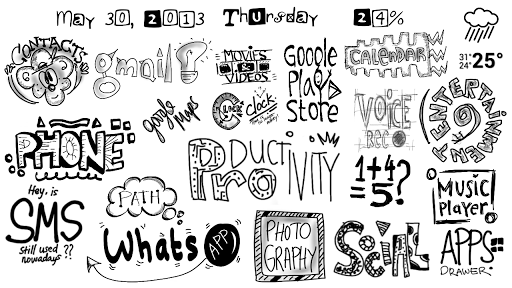 May 30, 2013 Thursday 24%
CONTACTS
gmail!
MOVIES & VIDEOS
Google Play Store
CALENDAR
31° 24° 25°
google maps
CLOCK
clock
VOICE REC
ENTERTAINMENT
PHONE
PRODUCTIVITY
1+4? =5.
MUSIC Player!
Hey, is
SMS
Still used nowadays??
PATH
Whats APP
PHOTOGRAPHY
SOCIAL
APPS
DRAWER